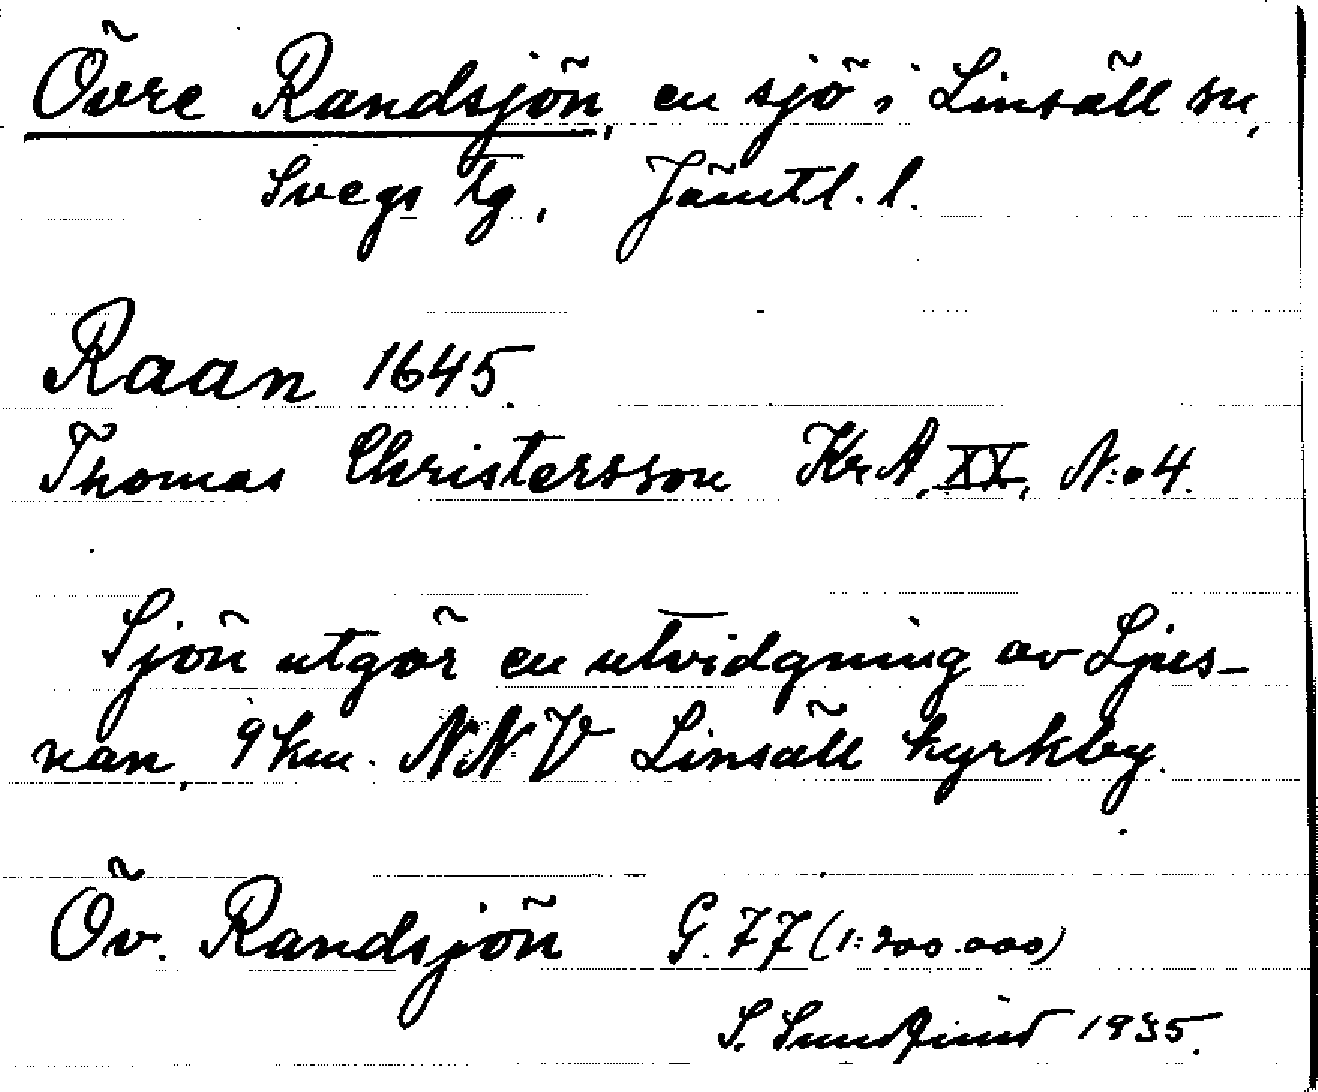 Övre Randsjön, en sjö i Linsäll sn,
Svegs tg, Jämtl. l.
Raan 1645.
Thomas Christersson Kr.A, XX, N:o 4.
Sjön utgör en utvidgning av Ljus-
nan, 9 km. NNV Linsäll kyrkby.
Öv. Randsjön G. 77 (1:200.000)
S. 1935.